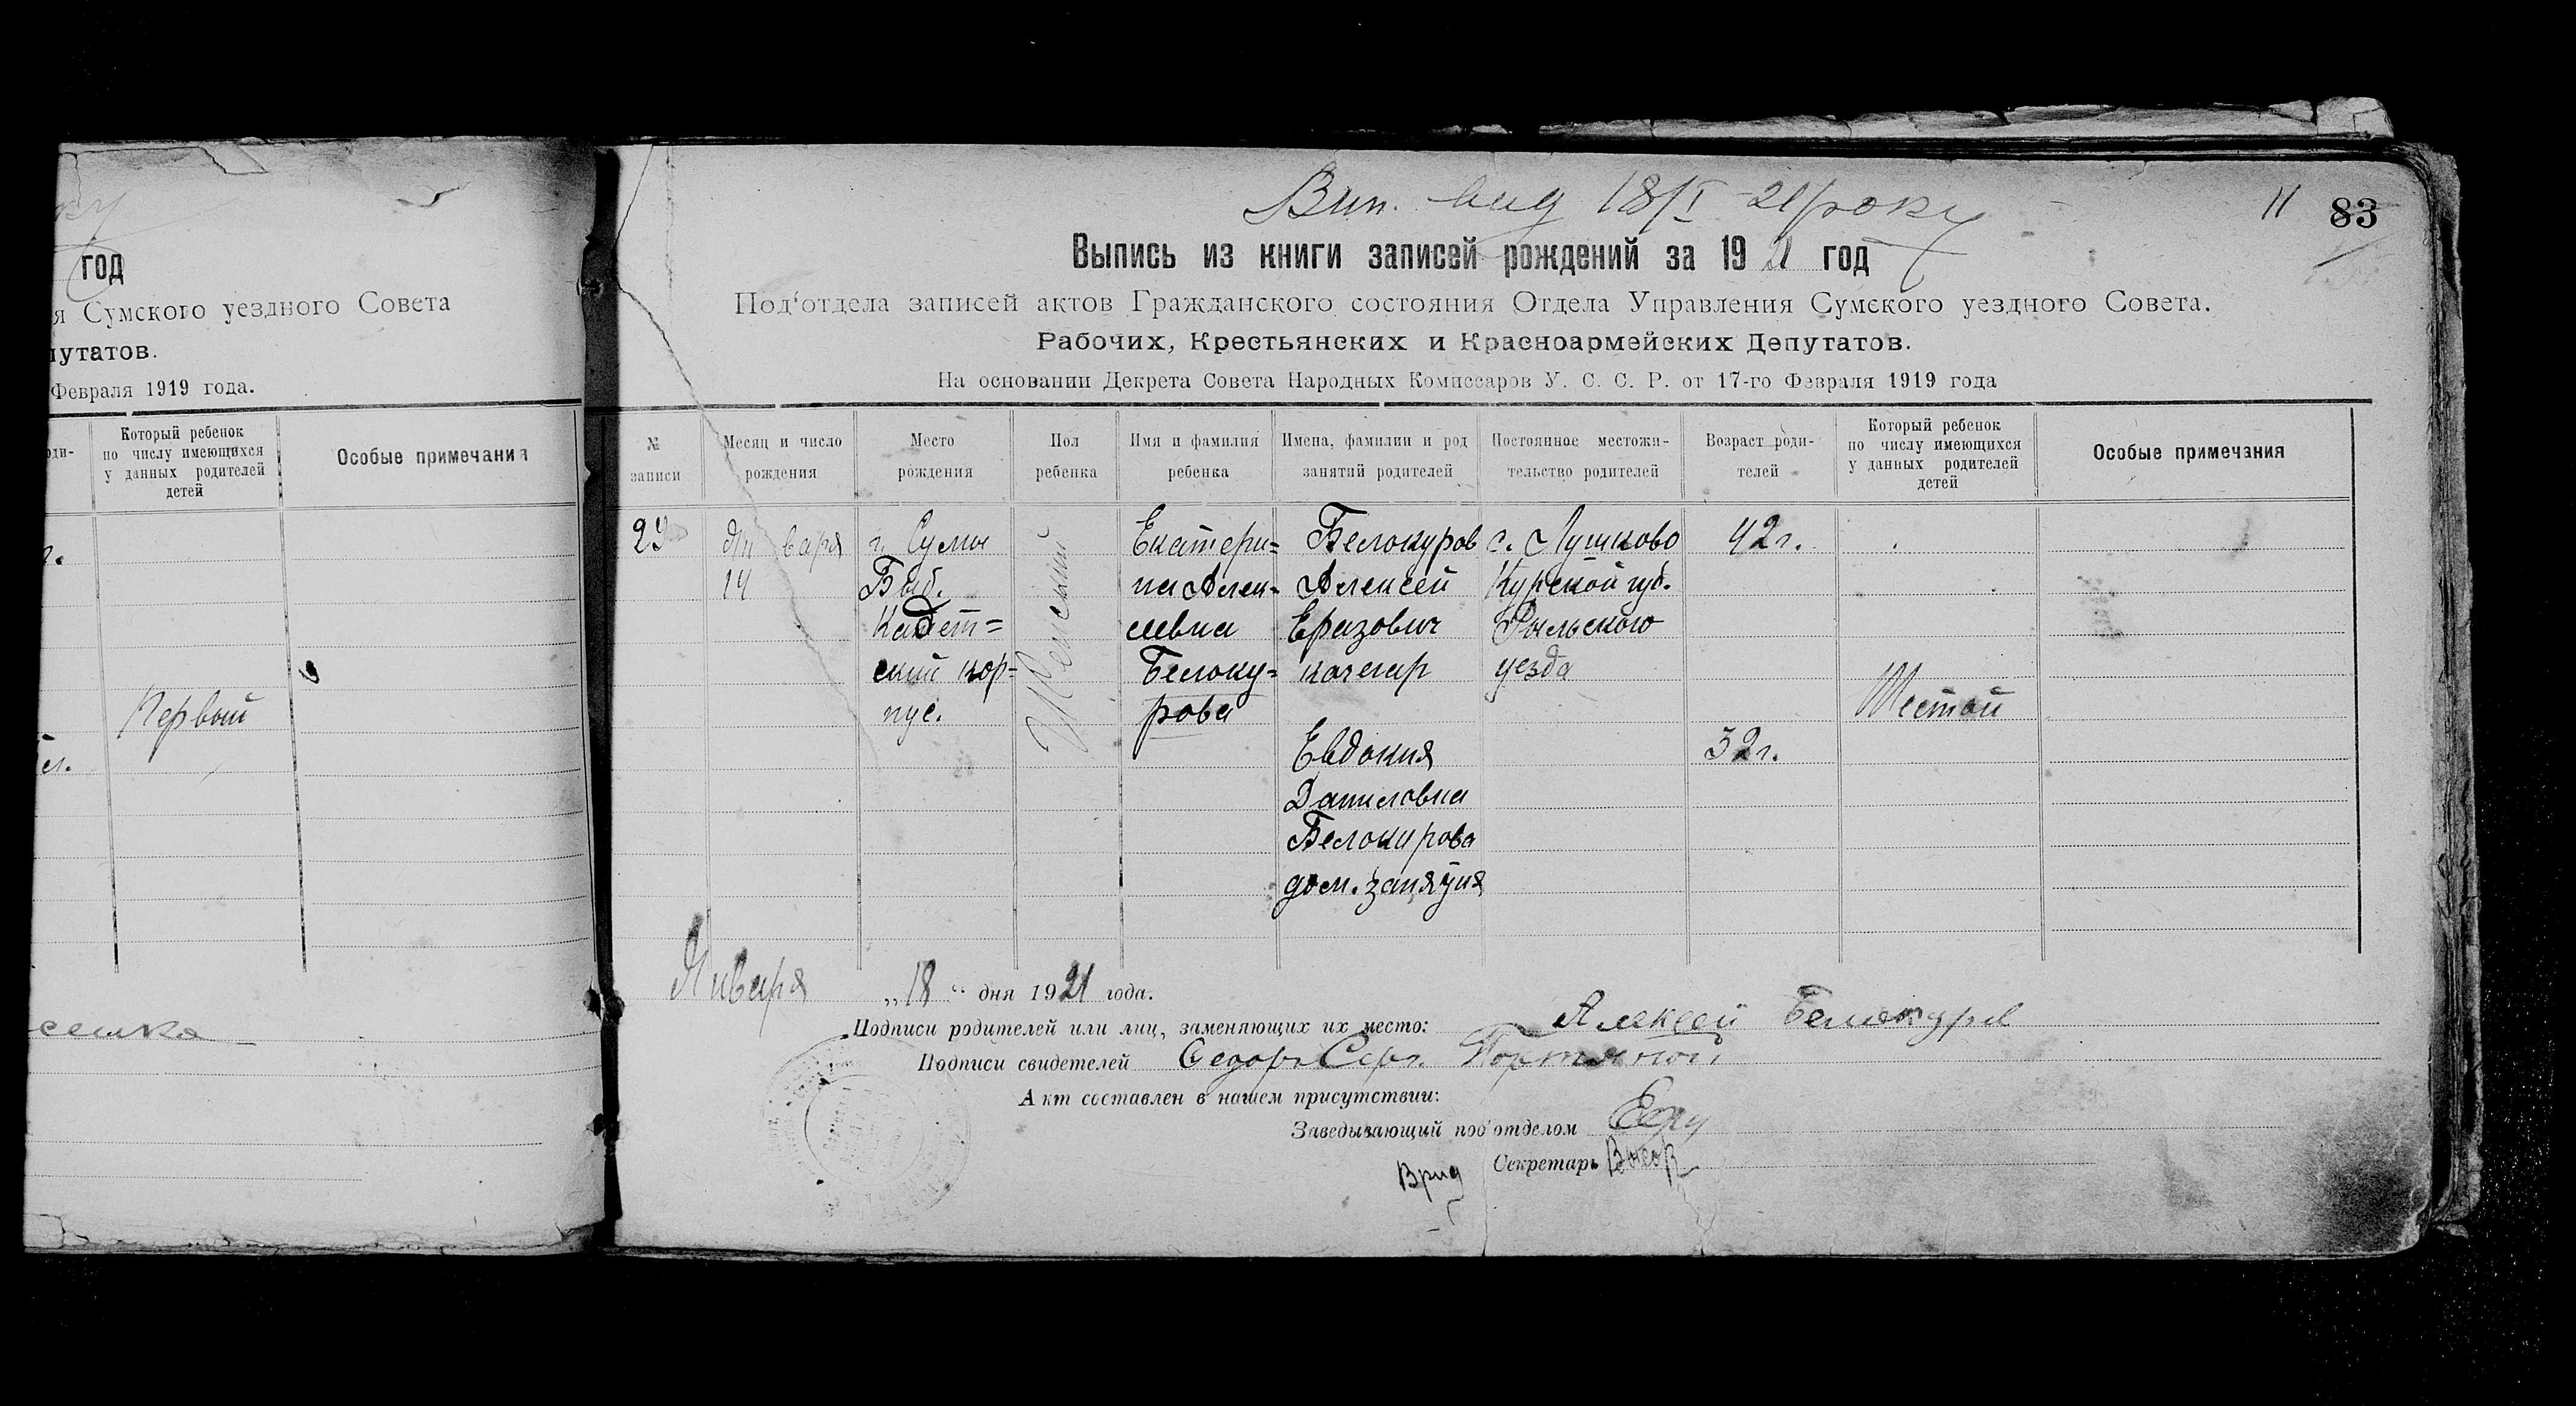 год
я Сумского уездного Совета
путатов.
Февраля 1919 года.
Который ребенок
по числу имеющихся
у данных родителей
детей
Особые примечания
Первый
Вип. вид 18/I-21 року
11 83
Выпись из книги записей рождений за 1921 год
Под'отдела записей актов Гражданского состояния Отдела Управления Сумского уездного Совета.
Рабочих, Крестьянских и Красноармейских Депутатов.
На основании Декрета Совета Народных Комиссаров У. С. С. Р. от 17-го Февраля 1919 года
№
записи
Месяц и число
рождения
Место
рождения
Пол
ребенка
Имя и фамилия
ребенка
Имена, фамилии и род
занятий родителей
Постоянное местожи-
тельство родителей
Возраст роди-
телей
Который ребенок
по числу имеющихся
у данных родителей
детей
Особые примечания
29
Января
14
г. Сумы
Быв.
Кадет=
ский кор-
пус.
Женский
Екатери=
на Алек-
сеевна
Белоку=
рова
Белокуров
Алексей
Еразович
кочегар
Евдокия
Даниловна
Белокурова
дом. занятия
с. Лушково
Курской губ.
Рыльского
уезда
42 г.
32 г.
Шестой
Января „18“ дня 1921 года.
Подписи родителей или лиц, заменяющих их место: Алексей Белокуров
Подписи свидетелей Федор Серг.
Акт составлен в нашем присутствии:
Заведывающий под'отделом
Врид Секретарь